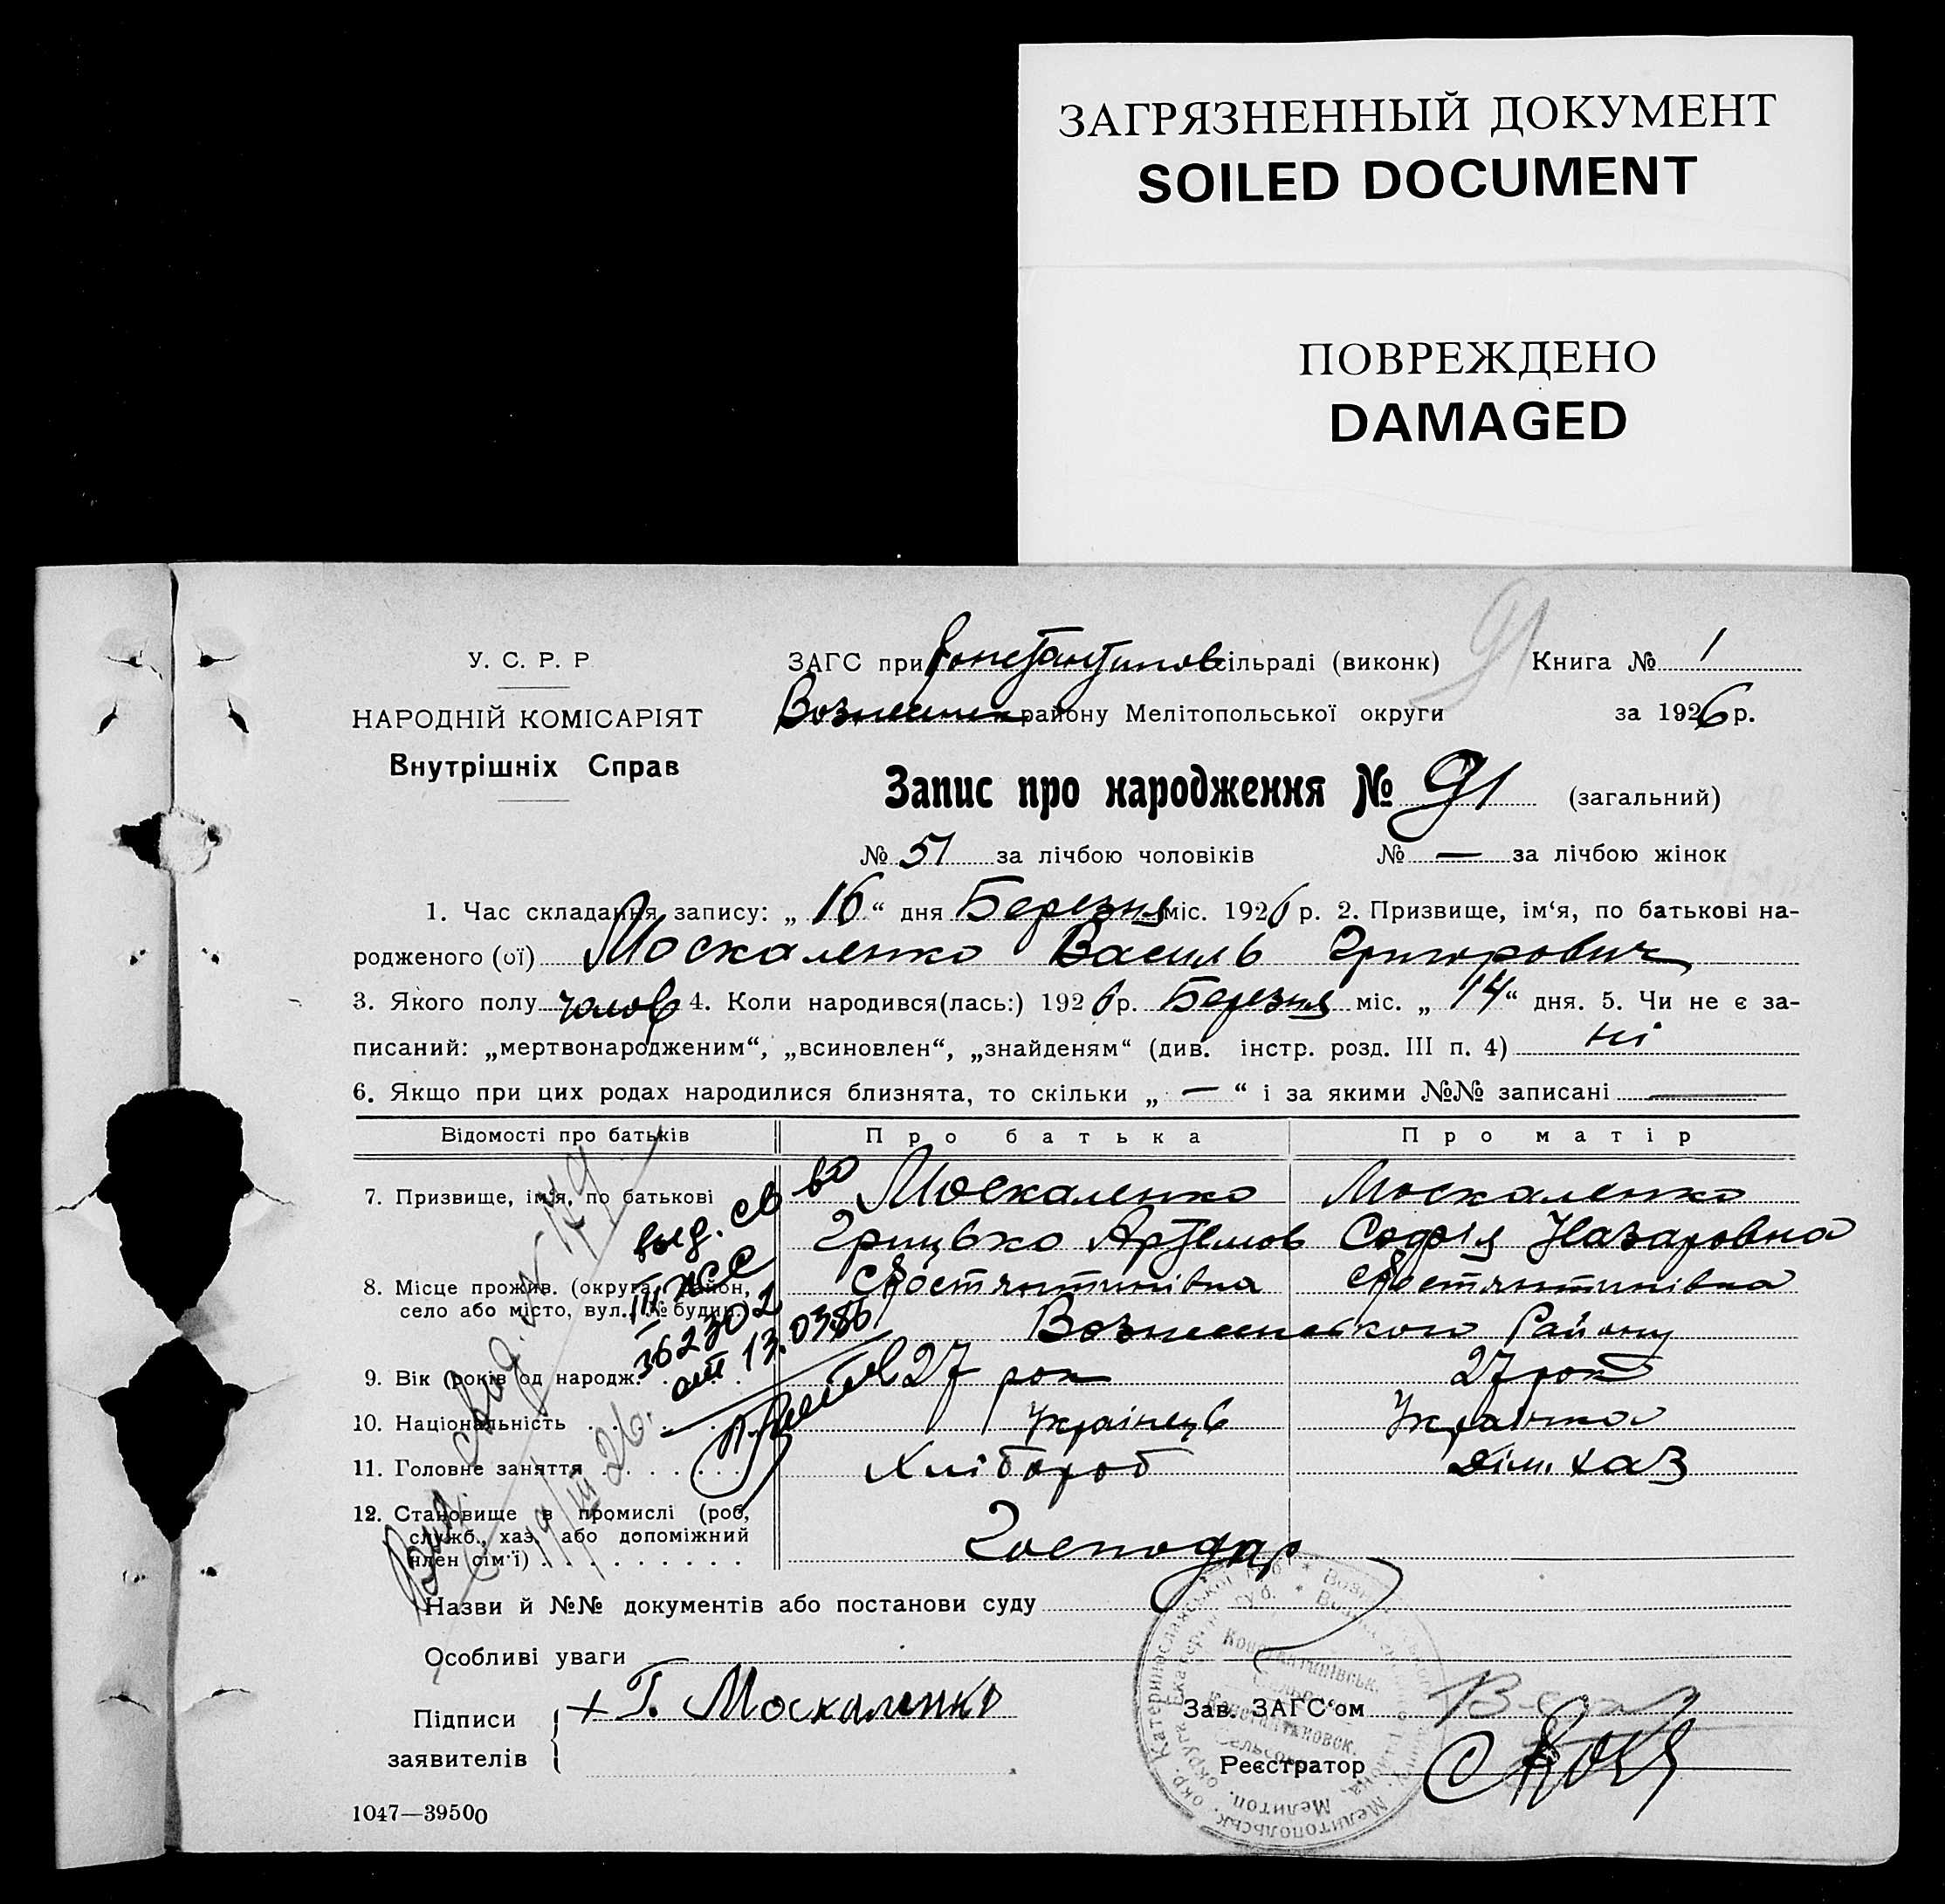 ЗАГРЯЗНЕННЫЙ ДОКУМЕНТ
SOILED DOCUMENT
ПОВРЕЖДЕНО
DAMAGED
91
У. С. Р. Р
НАРОДНІЙ КОМІСАРІЯТ
Внутрішніх Справ
ЗАГС при Константинов сільраді (виконк) Книга № 1
Вознесенск району Мелітопольської округи за 1926 р.
Запис про народження № 91 (загальний)
№ 51 за лічбою чоловіків № — за лічбою жінок
1. Час складання запису: „ 16 “ дня Березня міс. 1926 р. 2. Призвище, ім‘я, по батькові на-
родженого (ої) Москаленко Василь Григорович
3. Якого полу чолов 4. Коли народився(лась:) 1926 р. Березня міс. „ 14 “ дня. 5. Чи не є за-
писаний: „мертвонародженим“, „всиновлен“, „знайденям“ (див. інстр. розд. III п. 4) ні
6. Якщо при цих родах народилися близнята, то скільки „ — “ і за якими №№ записані —
Відомості про батьків Про батька Про матір
7. Призвище, ім‘я, по батькові Москаленко Москаленко
Грицько Артемов Софія Назаровна
8. Місце прожив. (округа, район, с Костянтинівка с Костянтинівка
село або місто, вул. № будин.) Вознесенського Району
9. Вік (років од народж. 27 рок 27 рок
10. Національність Українець Українка
11. Головне заняття Хлібороб Дім. хаз
12. Становище в промислі (роб,
служб., хаз. або допоміжний
член сім‘ї) Господар
выд. св во
III ЖС
362302
от 13.03.56
Вид. свид. №
19/III 26.
Назви й №№ документів або постанови суду
Особливі уваги
Підписи заявителів + Г. Москаленко
Зав. ЗАГС‘ом
Реєстратор
Катеринославської
Константинівськ.
Мелітопольськ. окр.
Мелитоп.
1047—39500